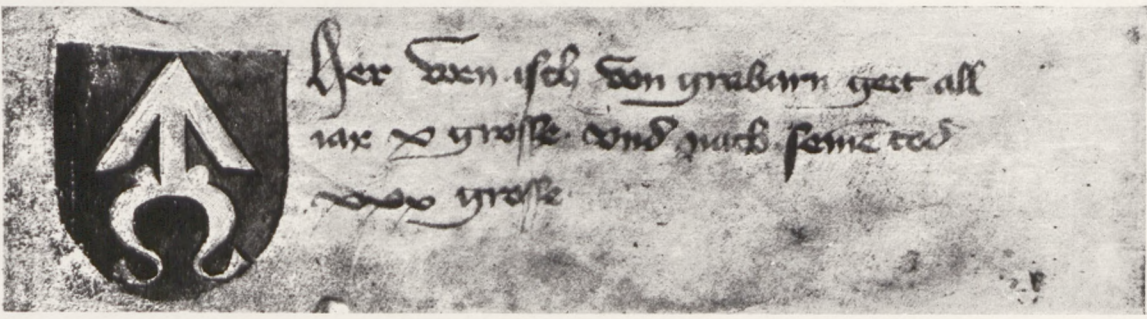 Her vren isch von grabarn geit all
iar x grosse. vnd nach seinē tod
xxx grosse